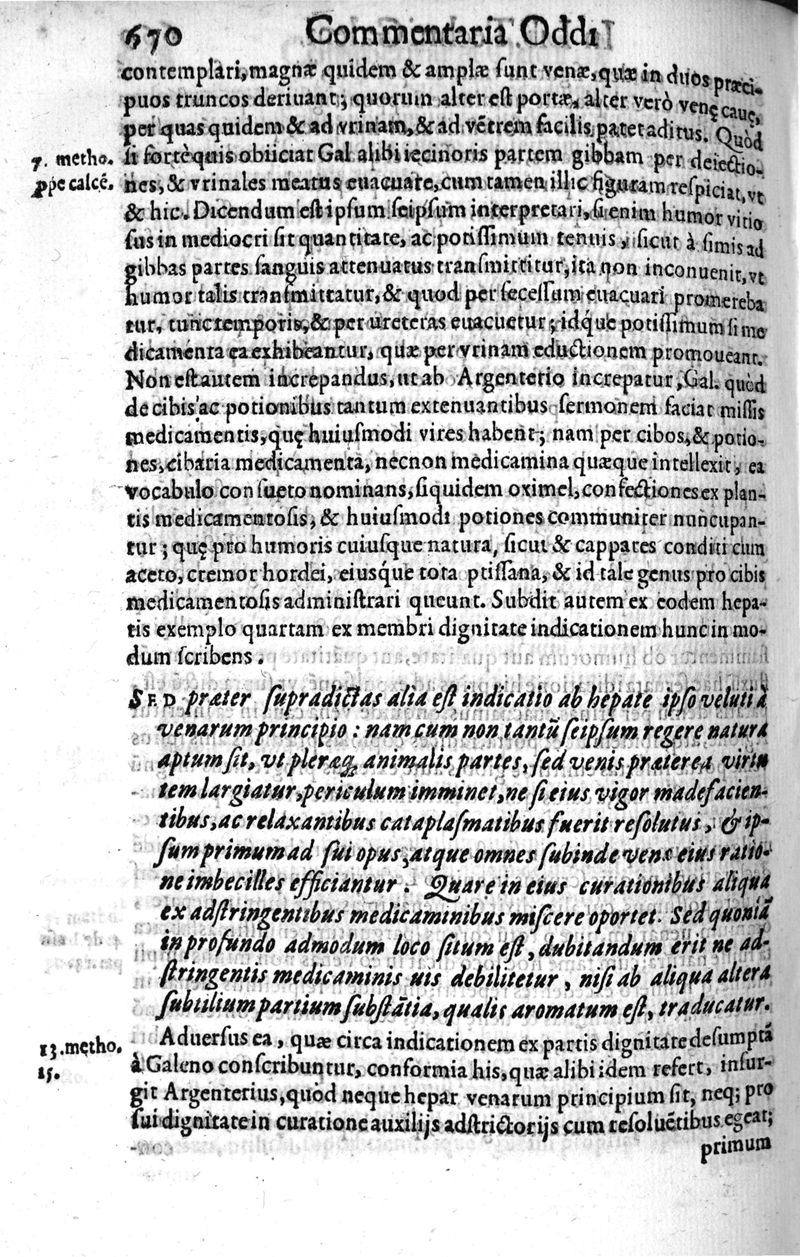 670 Commentaria Oddi
contemplari, magnæ quidem & amplæ sunt venæ, quæ in duos præci-
puos truncos deriuant; quorum alter est portæ, alter verò venę cauę,
per quas quidem & ad vrinam, & ad vētrem facilis patet aditus. Quòd
7. metho. si fortè quis obiiciat Gal alibi iecinoris partem gibbam per deiectio-
ppe calcē. nes, & vrinales meatus euacuare, cum tamen illic figuram respiciat, vt
& hic. Dicendum est ipsum seipsum interpretari, si enim humor vitio
sus in mediocri sit quantitate, ac potissimum tenuis, sicut à simis ad
gibbas partes sanguis attenuatus transmittitur, ita non inconuenit, vt
humor talis transmittatur, & quod per secessum euacuari promereba
tur, tunc temporis, & per ureteras euacuetur; idq́ue potissimum si me
dicamenta ea exhibeantur, quæ per vrinam eductionem promoueant.
Non est autem increpandus, ut ab Argenterio increpatur, Gal. quòd
de cibis ac potionibus tantum extenuantibus sermonem faciat missis
medicamentis, quę huiusmodi vires habent; nam per cibos, & potio-
nes, cibaria medicamenta, necnon medicamina quæque intellexit, ea
vocabulo consueto nominans, siquidem oximel, confectiones ex plan-
tis medicamentosis, & huiusmodi potiones communiter nuncupan-
tur; quę pro humoris cuiusque natura, sicut & cappares conditi cum
aceto, cremor hordei, eiusq́ue tota ptissana, & id tale genus pro cibis
medicamentosis administrari queunt. Subdit autem ex eodem hepa-
tis exemplo quartam ex membri dignitate indicationem hunc in mo-
dum scribens.
SED præter supradictas alia est indicatio ab hepate ipso veluti à
venarum principio: nam cum non tantū seipsum regere natura
aptum sit, vt pleræq; animalis partes, sed venis præterea virtu
tem largiatur, periculum imminet, ne si eius vigor madefacien-
tibus, ac relaxantibus cataplasmatibus fuerit resolutus, & ip-
sum primum ad sui opus, atque omnes subinde venæ eius ratio-
ne imbecilles efficiantur. Quare in eius curationibus aliqua
ex adstringentibus medicaminibus miscere oportet. Sed quoniā
in profundo admodum loco situm est, dubitandum erit ne ad-
stringentis medicaminis uis debilitetur, nisi ab aliqua altera
subtilium partium substātia, qualis aromatum est, traducatur.
13. metho. Aduersus ea, quæ circa indicationem ex partis dignitate desumptā
15. à Galeno conscribuntur, conformia his, quæ alibi idem refert, insur-
git Argenterius, quòd neque hepar venarum principium sit, neq; pro
sui dignitate in curatione auxilijs adstrictorijs cum resoluētibus egeat;
primum